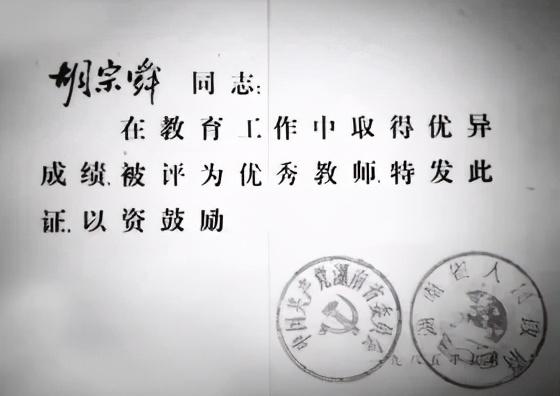 胡宗舜 同志:
在教育工作中取得优异
成绩,被评为优秀教师,特发此
证,以资鼓励
中国共产党湖南省委员会
湖南省人民政府
一九八五年